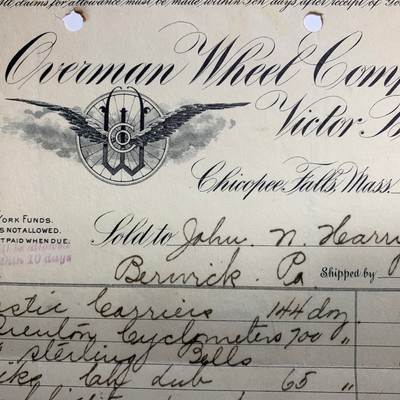 All claims for allowance must be made within ten days after receipt of Goo
Overman Wheel Comp
Victor B
Chicopee Falls, Mass
YORK FUNDS.
S NOT ALLOWED.
T PAID WHEN DUE.
thin 10 days
Sold to John N. Harri
Berwick. Pa
Shipped by
estic Carriers 144 doz
Trenton Cyclometers 700 "
sterling Bells
65 "